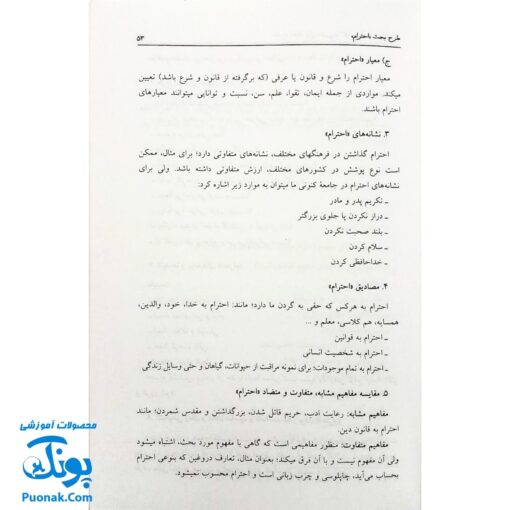 طرح بحث «احترام» ۵۳
ج) معیار «احترام»
معیار احترام را شرع و قانون یا عرفی (که برگرفته از قانون و شرع باشد) تعیین
میکند. مواردی از جمله ایمان، تقوا، علم، سن، نسبت و توانایی میتوانند معیارهای
احترام باشند.
۳. نشانه‌های «احترام»
احترام گذاشتن در فرهنگهای مختلف، نشانه‌های متفاوتی دارد؛ برای مثال، ممکن
است نوع پوشش در کشورهای مختلف، ارزش متفاوتی داشته باشد. ولی برای
نشانه‌های احترام در جامعهٔ کنونی ما میتوان به موارد زیر اشاره کرد:
ـ تکریم پدر و مادر
ـ دراز نکردن پا جلوی بزرگتر
ـ بلند صحبت نکردن
ـ سلام کردن
ـ خداحافظی کردن
۴. مصادیق «احترام»
احترام به هرکس که حقی به گردن ما دارد؛ مانند: احترام به خدا، خود، والدین،
همسایه، هم کلاسی، معلم و ...
ـ احترام به قوانین
ـ احترام به شخصیت انسانی
ـ احترام به تمام موجودات؛ برای نمونه مراقبت از حیوانات، گیاهان و حتی وسایل زندگی
۵. مقایسه مفاهیم مشابه، متفاوت و متضاد «احترام»
مفاهیم مشابه: رعایت ادب، حریم قائل شدن، بزرگداشتن و مقدس شمردن؛ مانند
احترام به قانون دین.
مفاهیم متفاوت: منظور مفاهیمی است که گاهی با مفهوم مورد بحث، اشتباه میشود
ولی آن مفهوم نیست و با آن فرق میکند؛ بعنوان مثال، تعارف دروغین که بنوعی احترام
بحساب می‌آید، چاپلوسی و چرب زبانی است و احترام محسوب نمیشود.
محصولات آموزشی
پونک
Puonak.Com